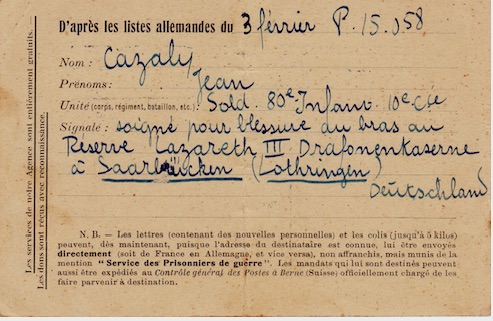 D'après les listes allemandes du 3 février P. 15.058
Nom : Cazaly
Prénoms : Jean
Unité (corps, régiment, bataillon, etc.) : Sold. 80e Infant. 10e Cie
Signalé : soigné pour blessure du bras au
Réserve Lazareth III Drafonenkaserne
à Saarbrücken (Lothringen)
Deutschland
N. B. — Les lettres (contenant des nouvelles personnelles) et les colis (jusqu'à 5 kilos)
peuvent, dès maintenant, puisque l'adresse du destinataire est connue, lui être envoyés
directement (soit de France en Allemagne, et vice versa), non affranchis, mais munis de la
mention "Service des Prisonniers de guerre". Les mandats qui lui sont destinés peuvent
aussi être expédiés au Contrôle général des Postes à Berne (Suisse) officiellement chargé de les
faire parvenir à destination.
Les services de notre Agence sont entièrement gratuits.
Les dons sont reçus avec reconnaissance.